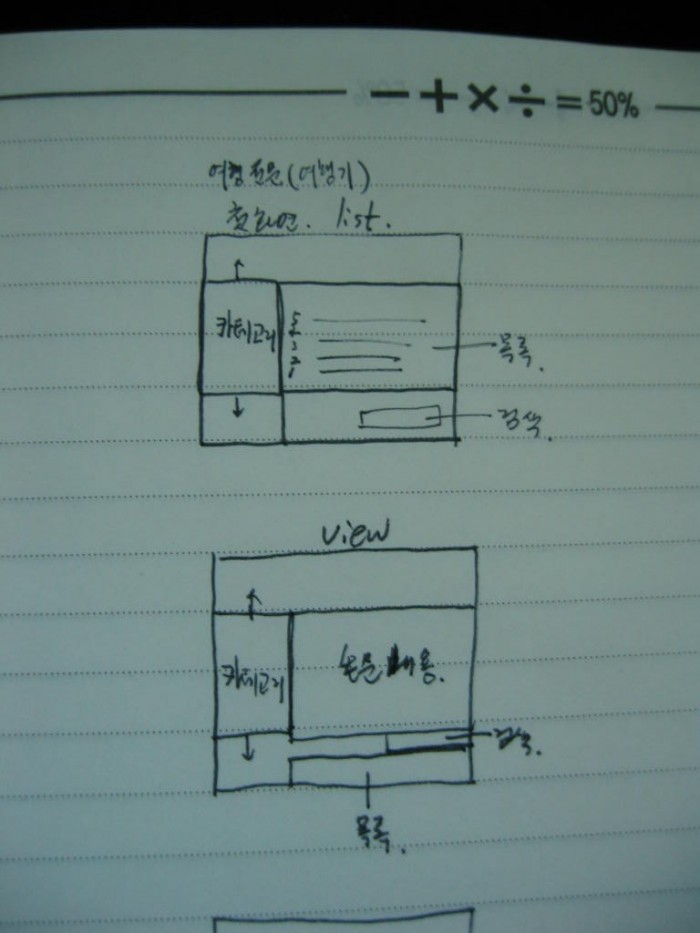 − + × ÷ = 50%
여행전문(여행기)
첫화면. list.
카테고리
5
3
2
1
목록.
검색.
view
카테고리
본문 내용.
검색.
목록.